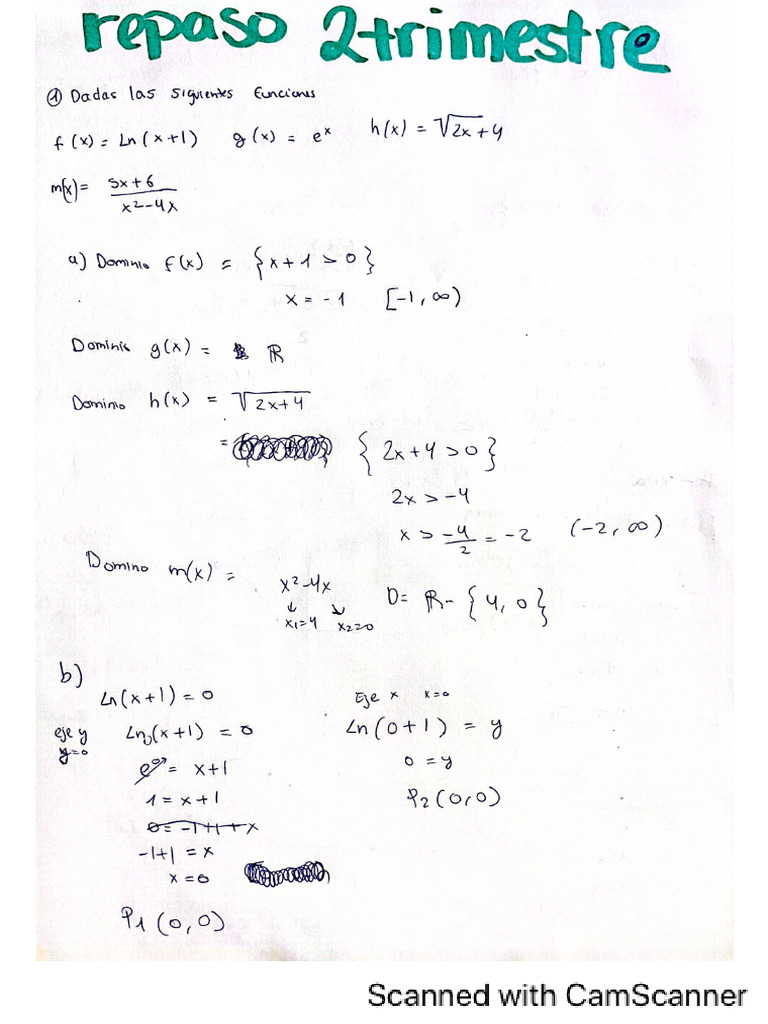 repaso 2trimestre
① Dadas las siguientes Funciones
f(x) = Ln(x+1) g(x) = eˣ h(x) = √2x+4
m(x) = 5x+6 / x²-4x
a) Dominio f(x) = {x+1 > 0}
x = -1 [-1, ∞)
Dominio g(x) = ℝ
Dominio h(x) = √2x+4
= {2x+4 > 0}
2x > -4
x > -4/2 = -2 (-2, ∞)
Domino m(x) = x²-4x D = ℝ - {4, 0}
↓ ↘
x₁=4 x₂=0
b)
Ln(x+1) = 0 Eje x x=0
eje y Ln(x+1) = 0 Ln(0+1) = y
y=0
e⁰ = x+1 0 = y
1 = x+1 P2 (0,0)
0 = -1+1+x
-1+1 = x
x = 0
P1 (0,0)
Scanned with CamScanner